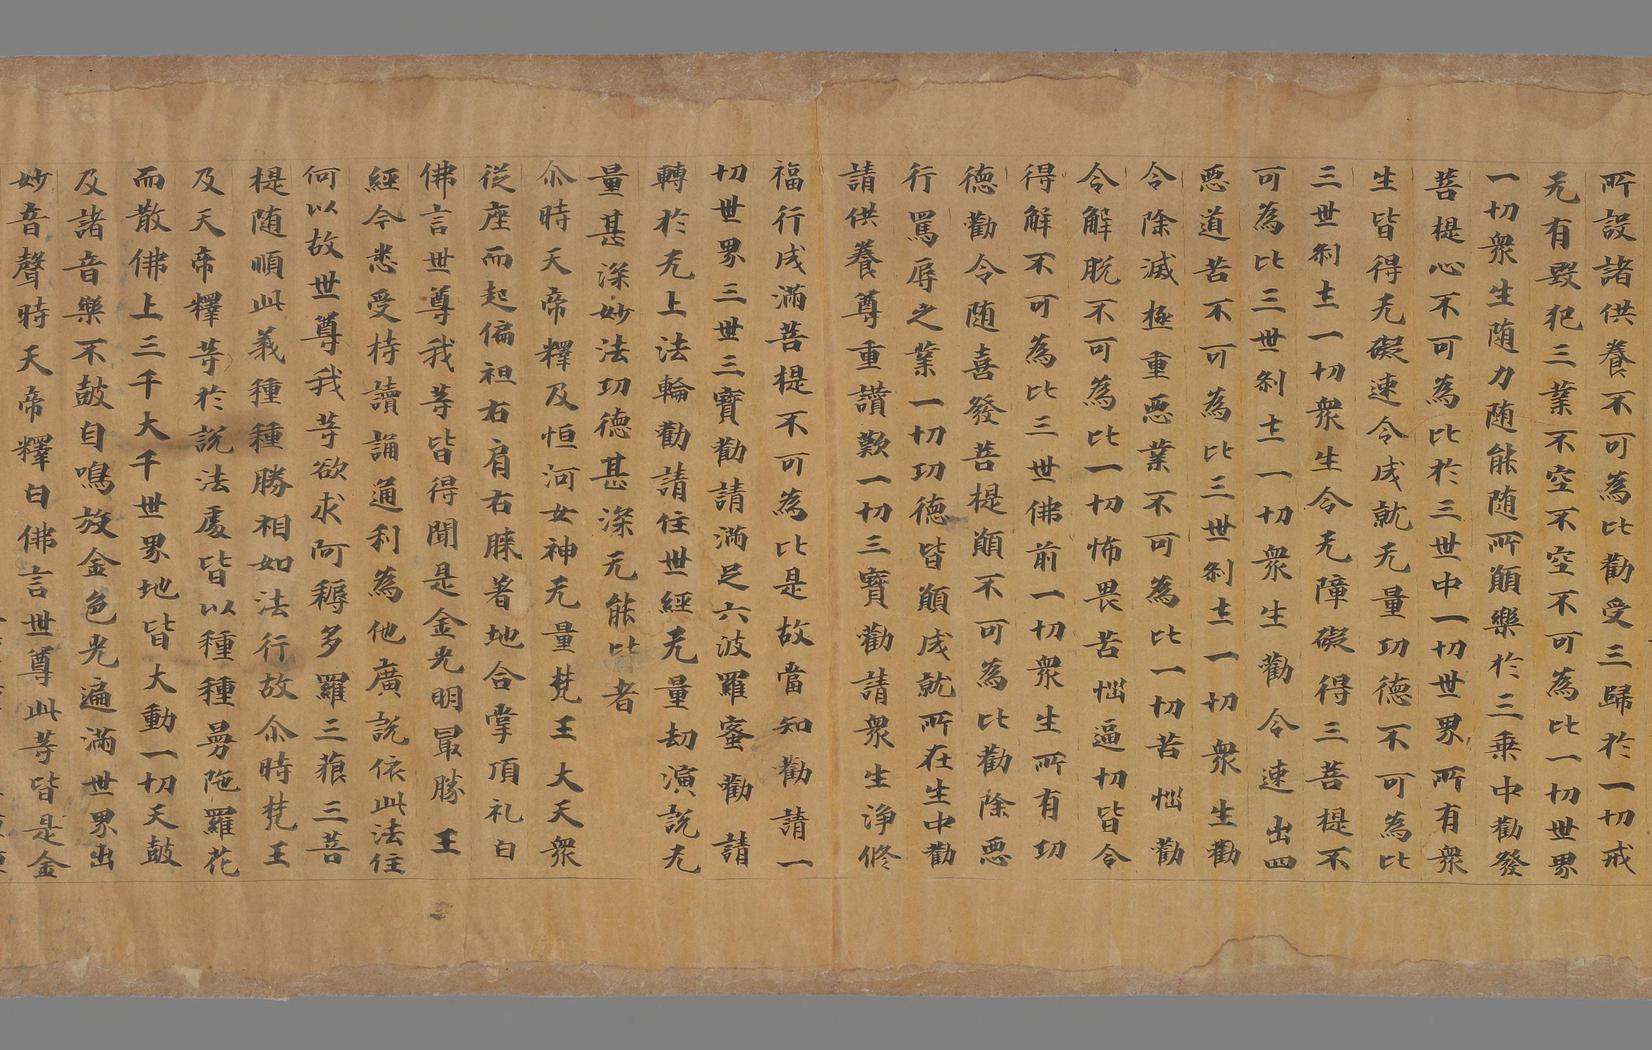 所設諸供養不可為比勸受三歸於一切戒
无有毀犯三業不空不空不可為比一切世界
一切衆生随力随能随所願樂於三乗中勸發
菩提心不可為比於三世中一切世界所有衆
生皆得无礙速令成就无量功德不可為比
三世刹土一切衆生令无障礙得三菩提不
可為比三世刹土一切衆生勸令速出四
惡道苦不可為比三世刹土一切衆生勸
令除滅極重惡業不可為比一切苦惱勸
令解脫不可為比一切怖畏苦惱逼切皆令
得解不可為比三世佛前一切衆生所有功
德勸令随喜發菩提願不可為比勸除惡
行罵辱之業一切功德皆願成就所在生中勸
請供養尊重讚歎一切三寶勸請衆生淨修
福行成滿菩提不可為比是故當知勸請一
切世界三世三寶勸請滿足六波羅蜜勸請
轉於无上法輪勸請住世經无量劫演說无
量甚深妙法功德甚深无能比者
尒時天帝釋及恒河女神无量梵王大天衆
從座而起偏袒右肩右膝著地合掌頂礼白
佛言世尊我等皆得聞是金光明冣勝王
經今悉受持讀誦通利為他廣說依此法住
何以故世尊我等欲求阿耨多羅三藐三菩
提随順此義種種勝相如法行故尒時梵王
及天帝釋等於說法處皆以種種曼陁羅花
而散佛上三千大千世界地皆大動一切天鼓
及諸音樂不鼓自鳴放金色光遍滿世界出
妙音聲時天帝釋白佛言世尊此等皆是金